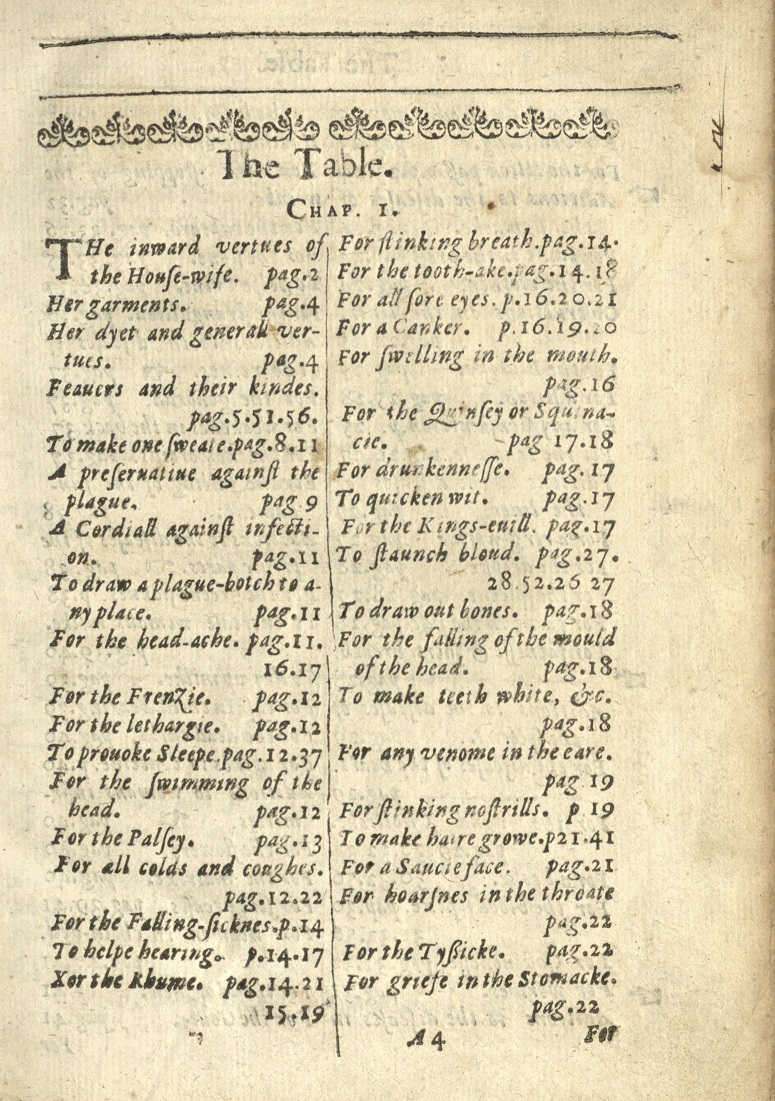 The Table.
CHAP. I.
THe inward vertues of
the House-wife. pag.2
Her garments. pag.4
Her dyet and generall ver-
tues. pag.4
Feauers and their kindes.
pag.5.51.56.
To make one sweate.pag.8.11
A preseruatiue against the
plague. pag 9
A Cordiall against infecti-
on. pag.11
To draw a plague-botch to a-
ny place. pag.11
For the head-ache. pag.11.
16.17
For the Frenzie. pag.12
For the lethargie. pag.12
To prouoke Sleepe.pag.12.37
For the swimming of the
head. pag.12
For the Palsey. pag.13
For all colds and coughes.
pag.12.22
For the Falling-sicknes.p.14
To helpe hearing. p.14.17
Xor the Rhume. pag.14.21
15.19
For stinking breath.pag.14.
For the tooth-ake.pag.14.18
For all sore eyes. p.16.20.21
For a Canker. p.16.19.20
For swelling in the mouth.
pag.16
For the Quinsey or Squina-
cie. pag 17.18
For drunkennesse. pag.17
To quicken wit. pag.17
For the Kings-euill. pag.17
To staunch bloud. pag.27.
28.52.26 27
To draw out bones. pag.18
For the falling of the mould
of the head. pag.18
To make teeth white, &c.
pag.18
For any venome in the eare.
pag 19
For stinking nostrills. p 19
To make haire growe.p21.41
For a Saucie face. pag.21
For hoarsnes in the throate
pag.22
For the Tyssicke. pag.22
For griefe in the Stomacke.
pag.22
A 4 For